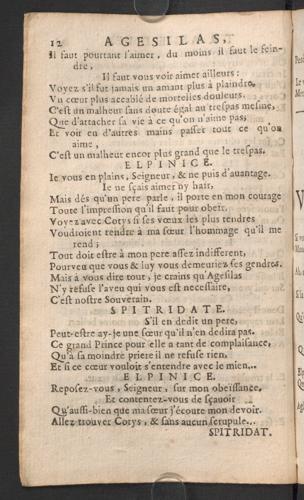 12 AGESILAS,
Il faut pourtant l'aimer, du moins il faut le fein-
dre,
Il faut vous voir aimer ailleurs:
Voyez s'il fut jamais un amant plus à plaindre,
Vn cœur plus accablé de mortelles douleurs.
C'est un malheur sans doute égal au trespas mesme,
Que d'attacher sa vie à ce qu'on n'aime pas;
Et voir en d'autres mains passer tout ce qu'on
aime,
C'est un malheur encor plus grand que le trespas.
ELPINICE.
Ie vous en plains, Seigneur, & ne puis d'auantage.
Ie ne sçais aimer ny haïr,
Mais dés qu'un pere parle, il porte en mon courage
Toute l'impression qu'il faut pour obeïr.
Voyez avec Cotys si ses vœux les plus tendres
Voudroient rendre à ma sœur l'hommage qu'il me
rend;
Tout doit estre à mon pere assez indifferent,
Pourveu que vous & luy vous demeuriez ses gendres.
Mais à vous dire tout, je crains qu'Agesilas
N'y refuse l'aveu qui vous est necessaire,
C'est nostre Souverain.
SPITRIDATE.
S'il en dedit un pere,
Peut-estre ay-je une sœur qu'il n'en dedira pas.
Ce grand Prince pour elle a tant de complaisance,
Qu'à sa moindre priere il ne refuse rien,
Et si ce cœur vouloit s'entendre avec le mien...
ELPINICE.
Reposez-vous, Seigneur, sur mon obeïssance,
Et contentez-vous de sçavoir
Qu'aussi-bien que ma sœur j'écoute mon devoir.
Allez trouver Cotys, & sans aucun scrupule...
SPITRIDAT.